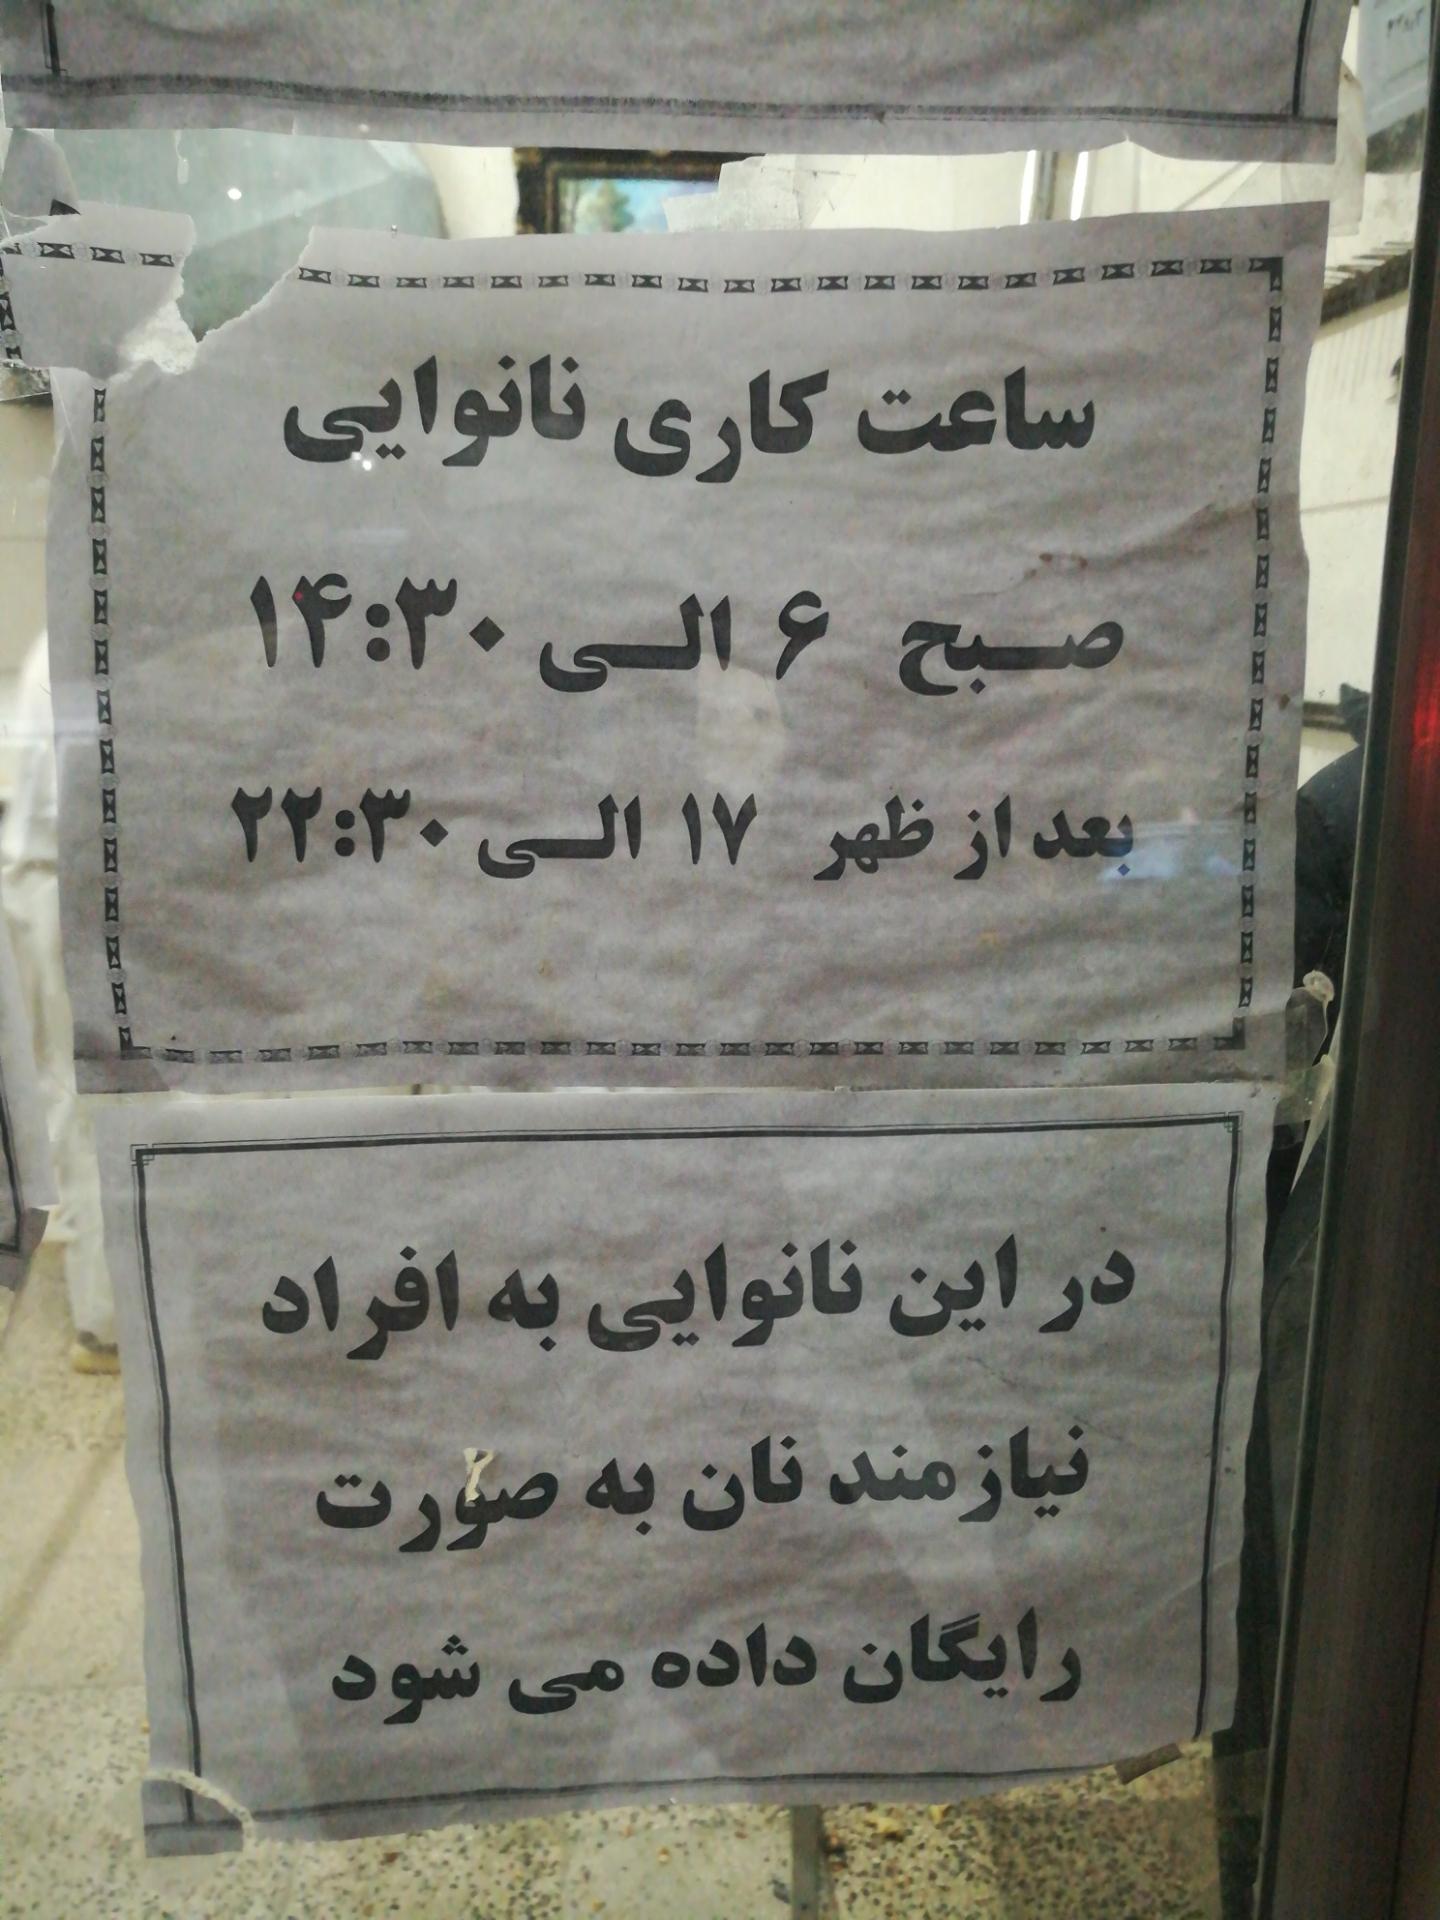 ساعت کاری نانوایی
صبح ۶ الی ۱۴:۳۰
بعد از ظهر ۱۷ الی ۲۲:۳۰
در این نانوایی به افراد
نیازمند نان به صورت
رایگان داده می شود